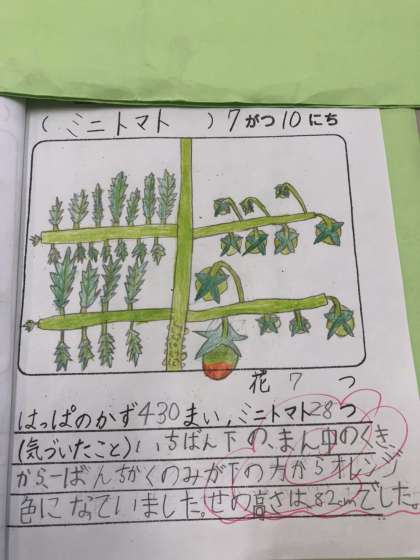 (ミニトマト)7がつ10にち
花7つ
はっぱのかず430まい,ミニトマト28つ
(気づいたこと)いちばん下の、まん中のくき、
から一ばんちかくのみが下の方からオレンジ
色になっていました。せの高さは、82cmでした。